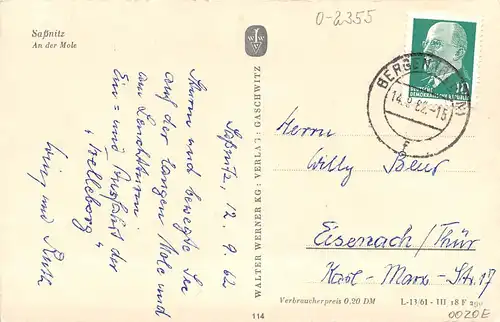 Saßnitz
An der Mole
0-2355
Saßnitz, 12.9.62
Sturm und bewegte See
auf der langen Mole und
am Leuchtturm.
Ein- und Ausfahrt der
"Trelleborg"
und Ruth
WALTER WERNER KG: VERLAG: GASCHWITZ
10
DEUTSCHE
DEMOKRATISCHE REPUBLIK
BERGEN
14.9.62.-15
Herrn
Willy Beur
Eisenach/Thür
Karl-Marx-Str. 17
Verbraucherpreis 0.20 DM
L-13/61-III 18 F
0020E
114